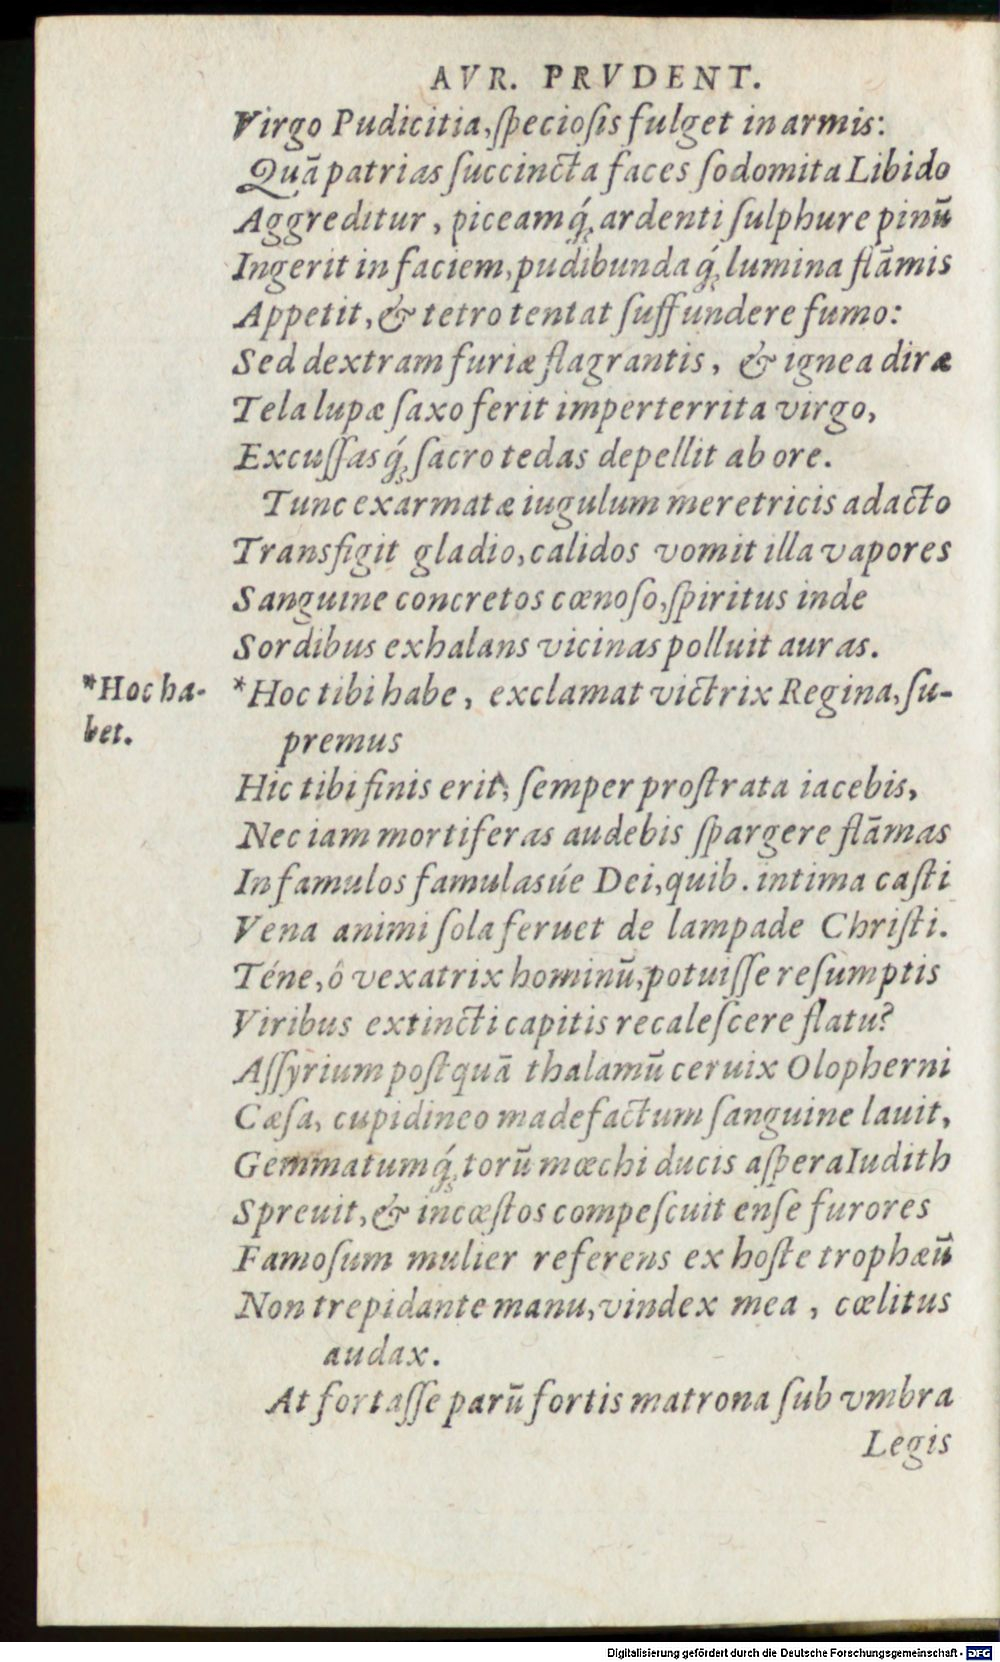 AVR. PRVDENT.
Virgo Pudicitia, ſpeciosis fulget in armis:
Quā patrias ſuccincta faces ſodomita Libido
Aggreditur, piceamq́; ardenti ſulphure pinū
Ingerit in faciem, pudibundaq́; lumina flāmis
Appetit, & tetro tentat ſuffundere fumo:
Sed dextram furiæ flagrantis, & ignea diræ
Tela lupæ ſaxo ferit imperterrita virgo,
Excuſſasq́; ſacro tedas depellit ab ore.
Tunc exarmatæ iugulum meretricis adacto
Transfigit gladio, calidos vomit illa vapores
Sanguine concretos cœnoſo, ſpiritus inde
Sordibus exhalans vicinas polluit auras.
*Hoc ha-
bet.
*Hoc tibi habe, exclamat victrix Regina, ſu-
premus
Hic tibi finis erit, ſemper proſtrata iacebis,
Nec iam mortiferas audebis ſpargere flāmas
In famulos famulasúe Dei, quib. intima caſti
Vena animi ſola feruet de lampade Chriſti.
Téne, ô vexatrix hominū, potuiſſe reſumptis
Viribus extincti capitis recaleſcere flatu?
Aſſyrium poſtquā thalamū ceruix Olopherni
Cæſa, cupidineo madefactum ſanguine lauit,
Gemmatumq́; torū mœchi ducis aſpera Iudith
Spreuit, & incœſtos compeſcuit enſe furores
Famoſum mulier referens ex hoſte trophæū
Non trepidante manu, vindex mea, cœlitus
audax.
At fortaſſe parū fortis matrona ſub vmbra
Legis
Digitalisierung gefördert durch die Deutsche Forschungsgemeinschaft - DFG